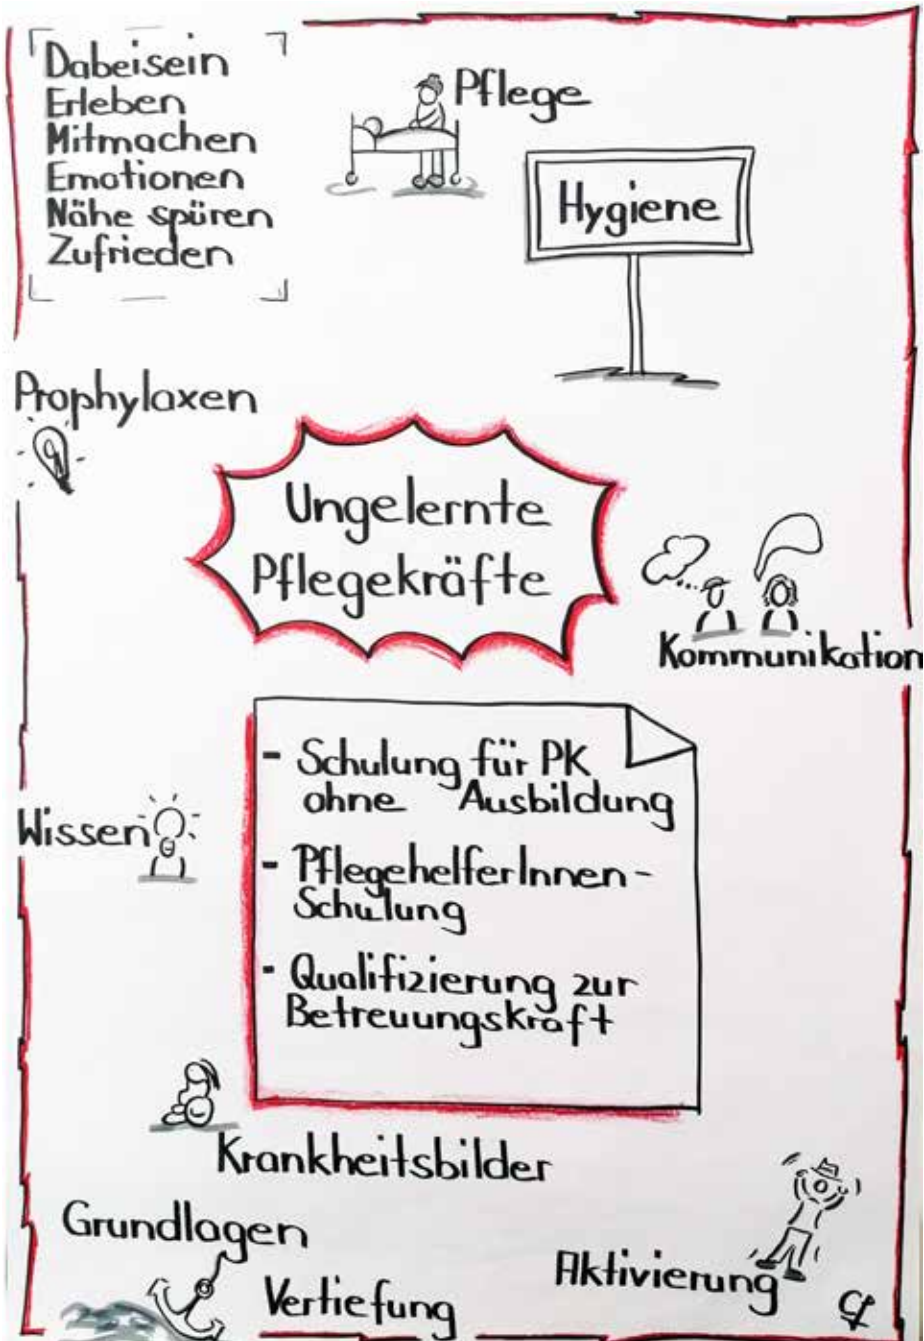 Dabeisein
Erleben
Mitmachen
Emotionen
Nähe spüren
Zufrieden
Pflege
Hygiene
Prophylaxen
Ungelernte
Pflegekräfte
Kommunikation
- Schulung für PK
ohne Ausbildung
- PflegehelferInnen-
Schulung
- Qualifizierung zur
Betreuungskraft
Wissen
Krankheitsbilder
Grundlagen
Vertiefung
Aktivierung